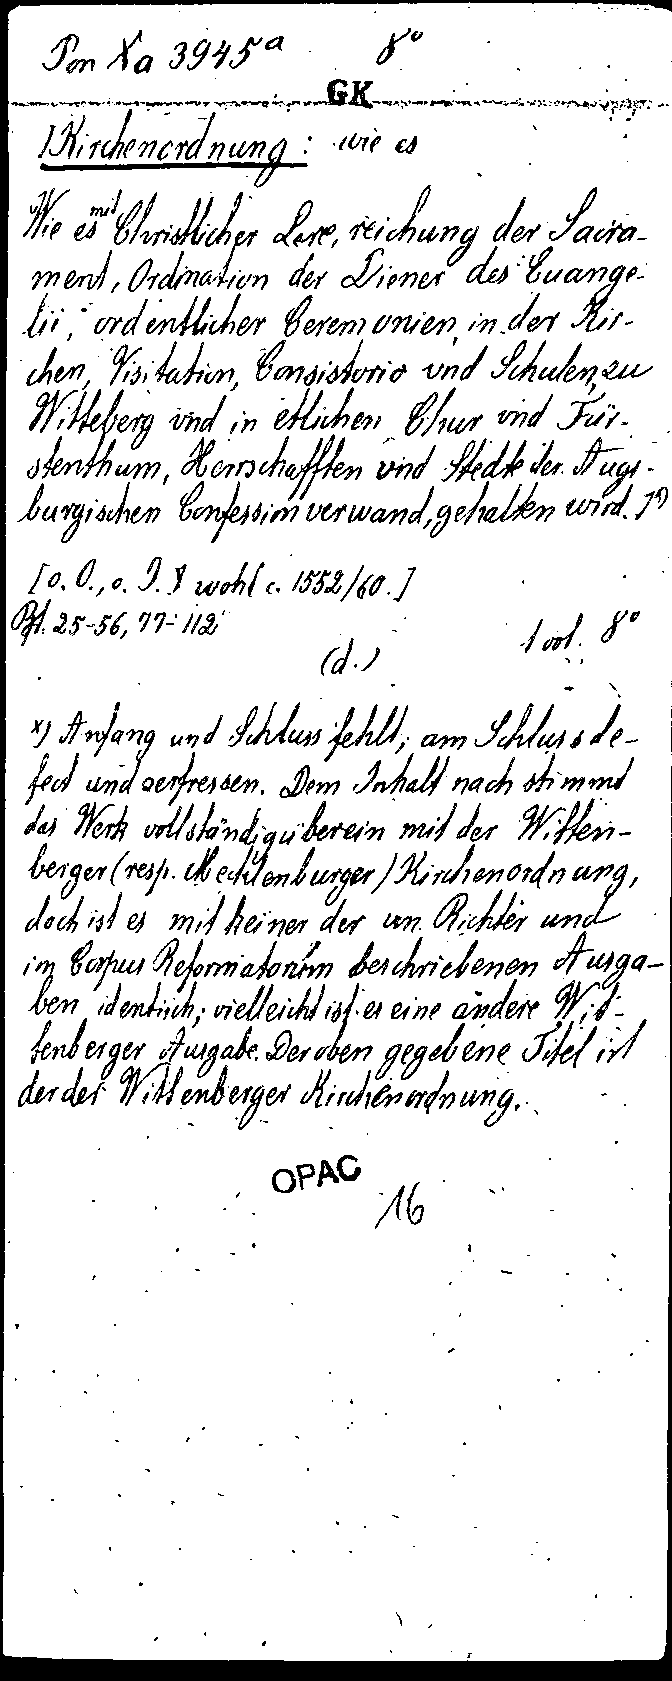 Pon Xa 3945a 8°
GK
[Kirchenordnung: wie es
Wie es mit Christlicher Lere, reichung der Sacra-
ment, Ordination der Diener des Euange-
lii, ordentlicher Ceremonien, in der Kir-
chen, Visitation, Consistorio vnd Schulen, zu
Witteberg vnd in etlichen Chur vnd Für-
stenthum, Herrschafften vnd Stedte der Augs-
burgischen Confession verwand, gehalten wird.]x)
[o. O., o. J. wohl c. 1552/60.]
Bl. 25-56, 77-112
1 vol. 8°
(d.)
x) Anfang und Schluss fehlt; am Schluss de-
fect und zerfressen. Dem Inhalt nach stimmt
das Werk vollständig überein mit der Witten-
berger (resp. Mecklenburger) Kirchenordnung,
doch ist es mit keiner der von Richter und
im Corpus Reformatorum beschriebenen Ausga-
ben identisch; vielleicht ist es eine andere Wit-
tenberger Ausgabe. Der oben gegebene Titel ist
der der Wittenberger Kirchenordnung.
OPAC
16